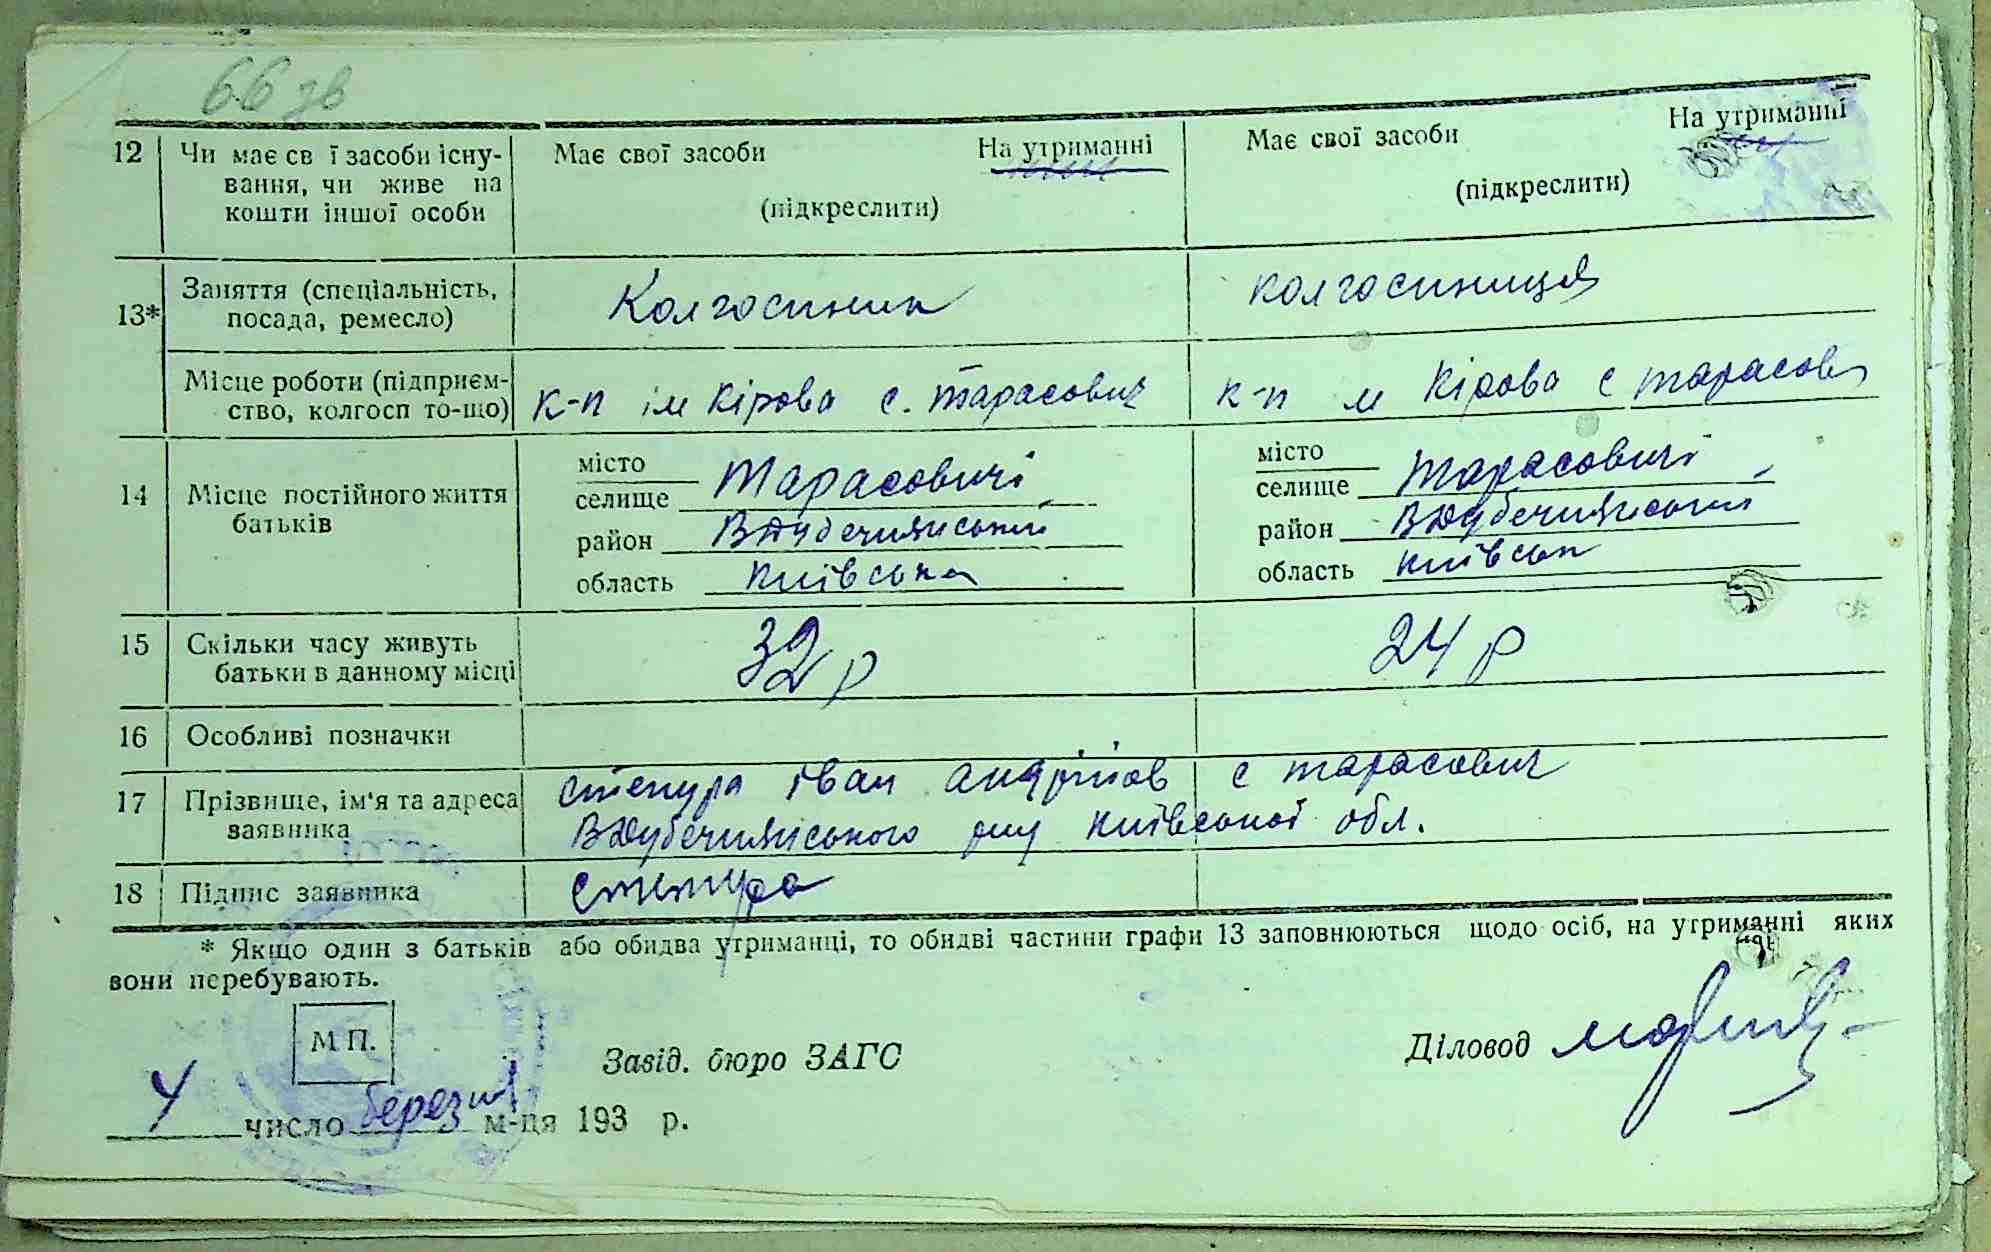 66 зв
12 Чи має св ї засоби існу- Має свої засоби На утриманні Має свої засоби На утриманні
вання, чи живе на
кошти іншої особи (підкреслити) (підкреслити)
13* Заняття (спеціальність, Колгоспник колгоспниця
посада, ремесло)
Місце роботи (підприєм- к-п ім Кірова с. Тарасович к-п м Кірова с Тарасов
ство, колгосп то-що)
14 Місце постійного життя
батьків
місто
селище Тарасовичі
район ВДубечнянський
область Київська
місто
селище Тарасовичі
район ВДубечнянський
область Київськ
15 Скільки часу живуть 32 р 24 р
батьки в данному місці
16 Особливі позначки
17 Прізвище, ім'я та адреса Степура Іван Андрійов с Тарасович
заявника ВДубечнянського р-ну Київської обл.
18 Підпис заявника Степура
* Якщо один з батьків або обидва утриманці, то обидві частини графи 13 заповнюються щодо осіб, на утриманні яких
вони перебувають.
М П.
Завід. бюро ЗАГС Діловод
4 число березня м-ця 193 р.